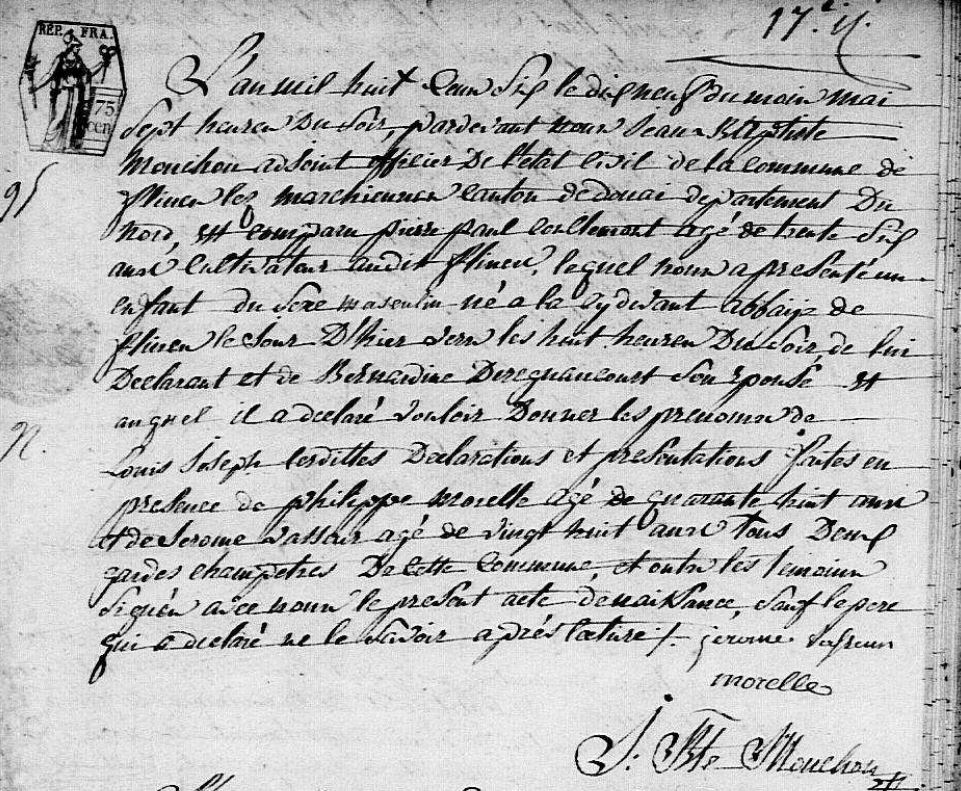 RÉP. FRA.
75
cen
17e
L'an mil huit Cent Six le dix neuf du mois mai
Sept heures Du Soir, pardevant nous Jean Baptiste
Mouchon adjoint officier De l'état Civil de la Commune de
95
flines lez marchiennes Canton de douai département Du
Nord, est Comparu pierre paul agé de trente Six
ans Cultivateur audit flines, lequel nous a présenté un
enfant du Sexe masculin né a la Cydevant abbaije de
flines le Jour D'hier vers les huit heures Du Soir, de lui
Déclarant et de Bernardine Deregnaucourt Son Epouse et
auquel il a declaré vouloir Donner les prenoms de
N.
Louis Joseph Lesdittes Declarations et présentations faites en
présence de philippe morelle agé de quarante huit ans
et de Jerome vasseur agé de vingt huit ans Tous Deux
gardes champetres De Cette Commune, et ont les temoins
Signés avec nous le présent acte de naissance, Sauf le pere
qui a declaré ne le Savoir après lecture /. jerome
morelle
J. Bte Mouchon